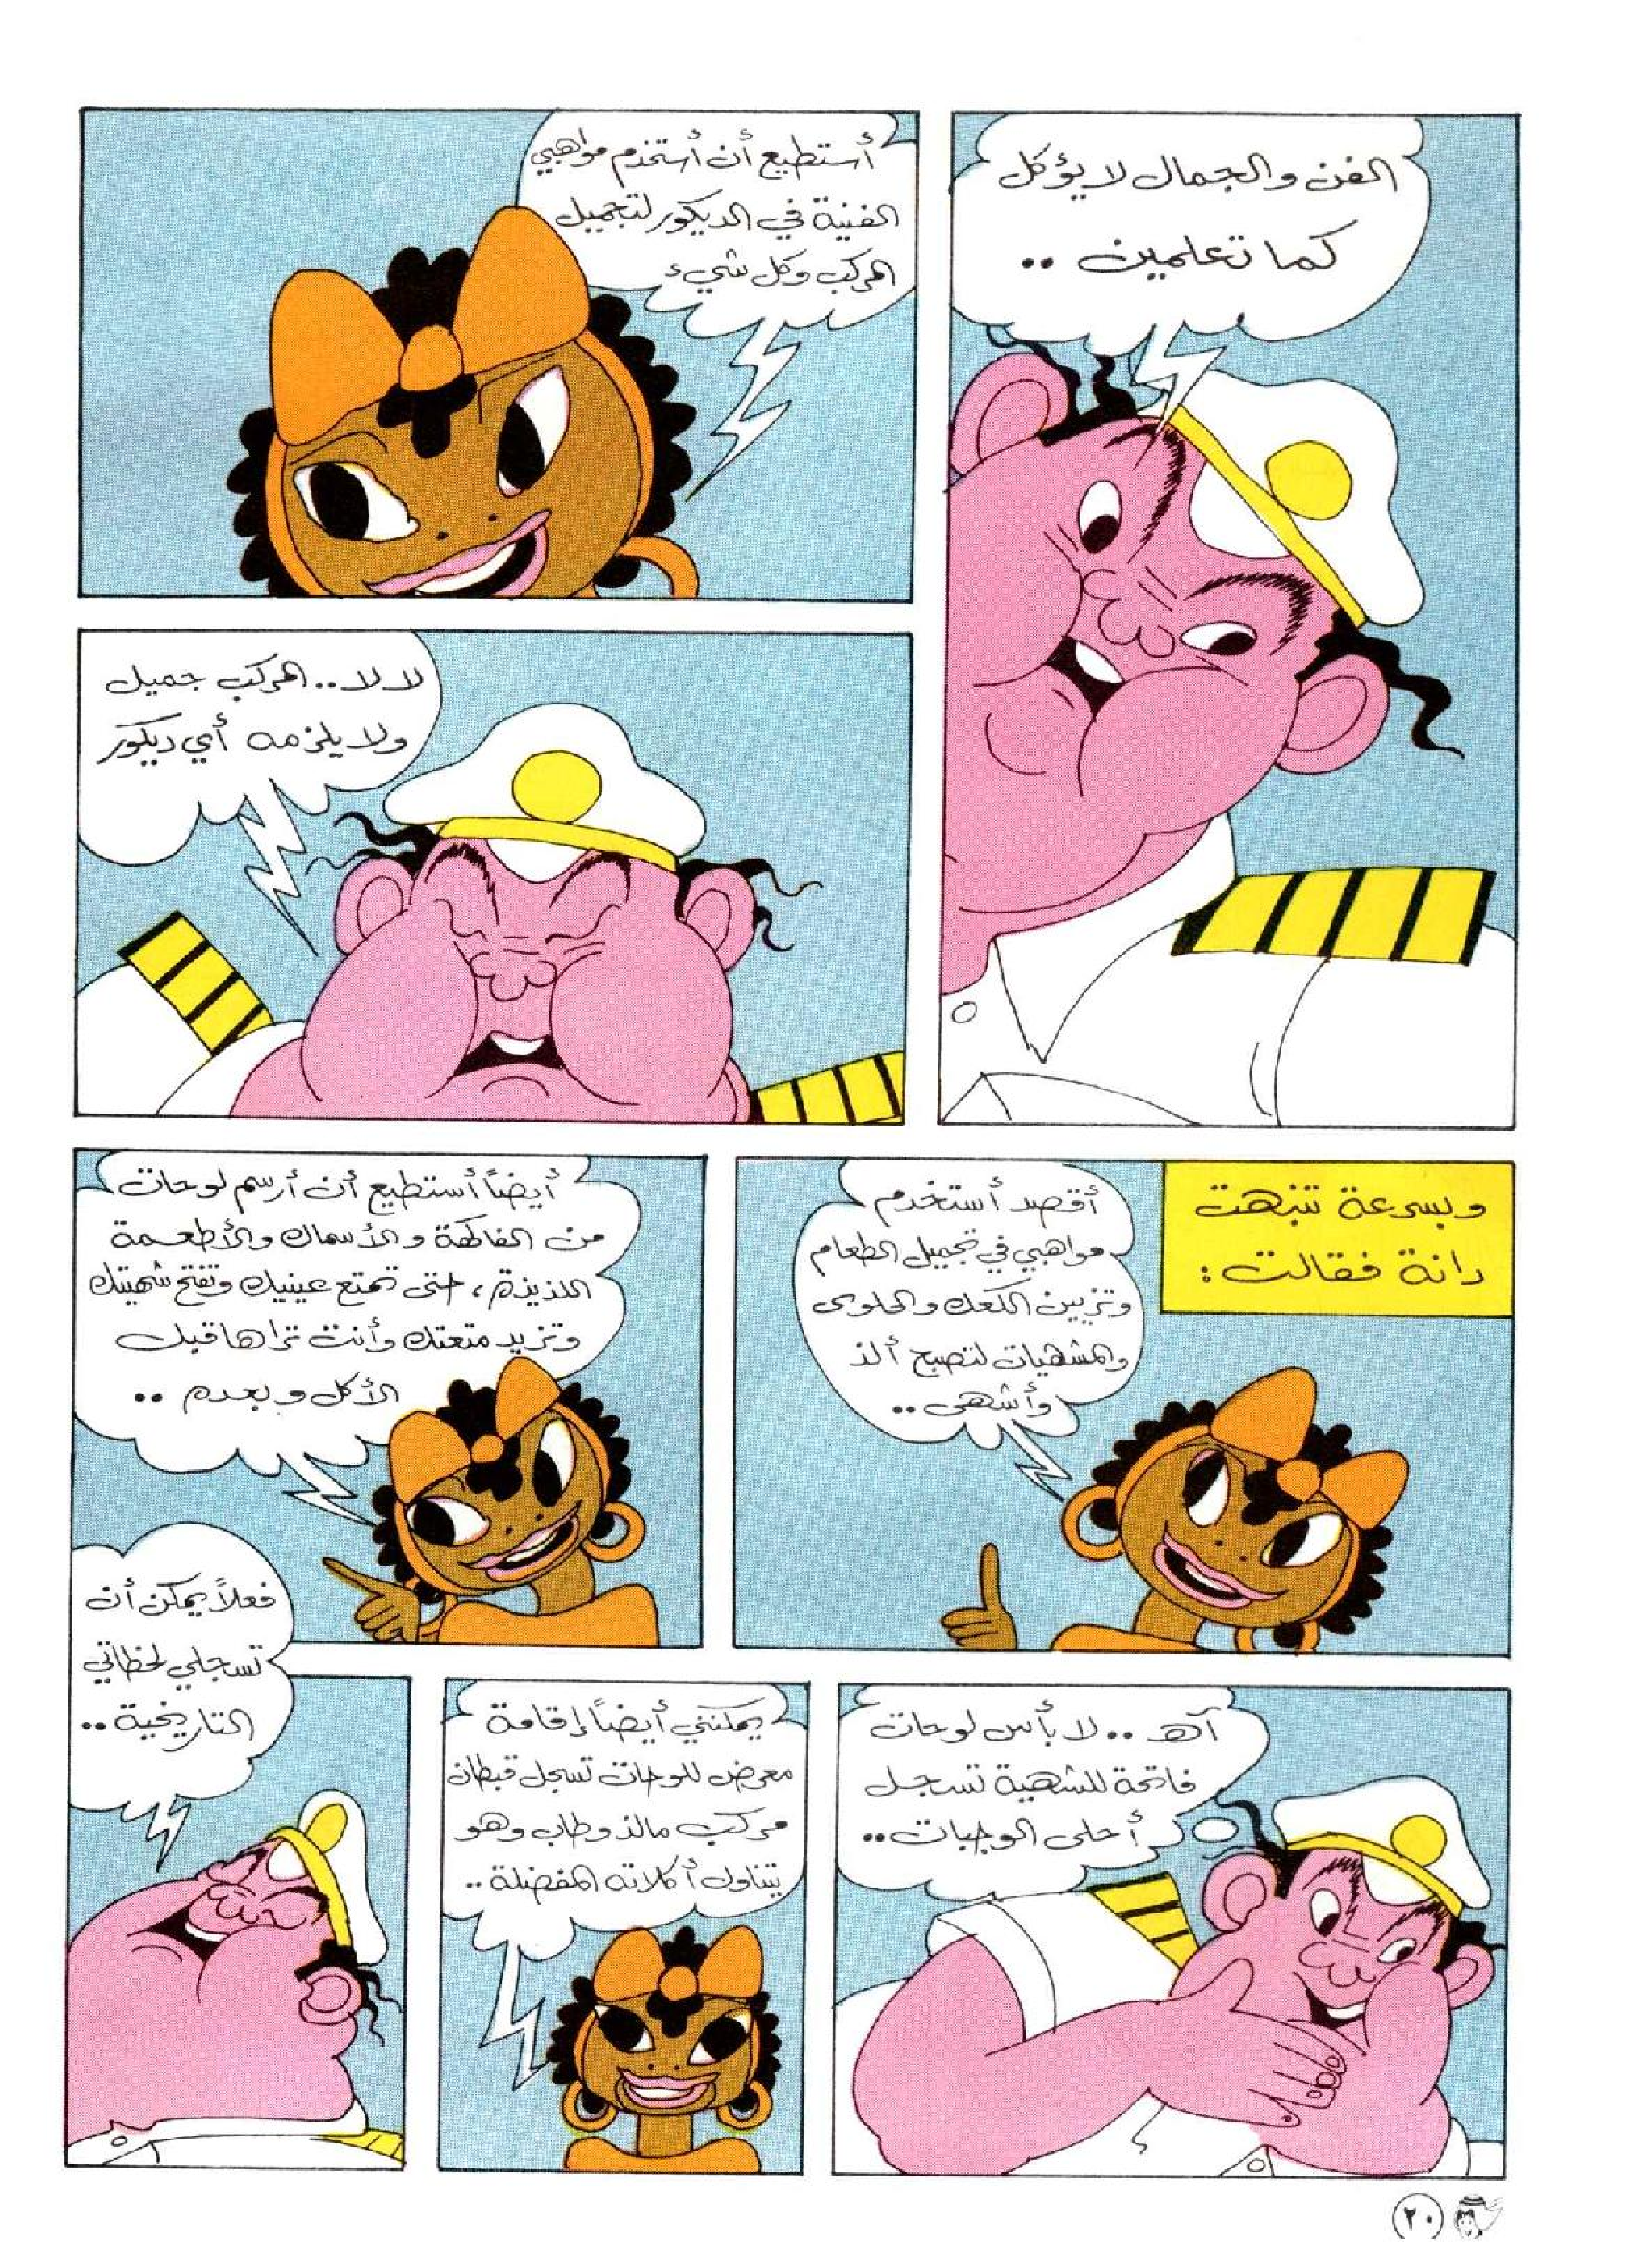 الفن والجمال لا يؤكل
كما تعلمين ..
أستطيع أن أستخدم مواهبي
الفنية في الديكور لتجميل
المركب وكل شيء
لا لا .. المركب جميل
ولا يلزمه أي ديكور
وبسرعة تنبهت
دانة فقالت :
أقصد أستخدم
مواهبي في تجميل الطعام
وتزيين الكعك والحلوى
والمشهيات لتصبح ألذ
وأشهى ..
أيضاً أستطيع أن أرسم لوحات
من الفاكهة والأسماك والأطعمة
اللذيذة ، حتى تمتع عينيك وتفتح شهيتك
وتزيد متعتك وأنت تراها قبل
الأكل وبعده ..
آه .. لا بأس لوحات
فاتحة للشهية تسجل
أحلى الوجبات ..
يمكنني أيضاً إقامة
معرض للوحات تسجل قبطان
مركب مالذ وطاب وهو
يتناول أكلاته المفضلة ..
فعلاً يمكن أن
تسجلي لحظاتي
التاريخية ..
٢٠